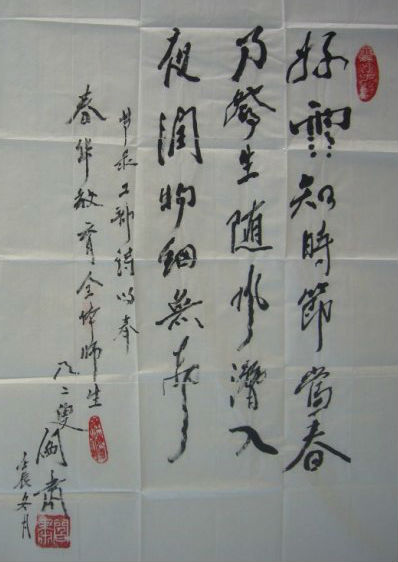 好雨知時節當春
乃發生随風潛入
夜潤物細無聲
节录工部诗以奉
春华教育全体师生
八二叟阎肃
壬辰冬月